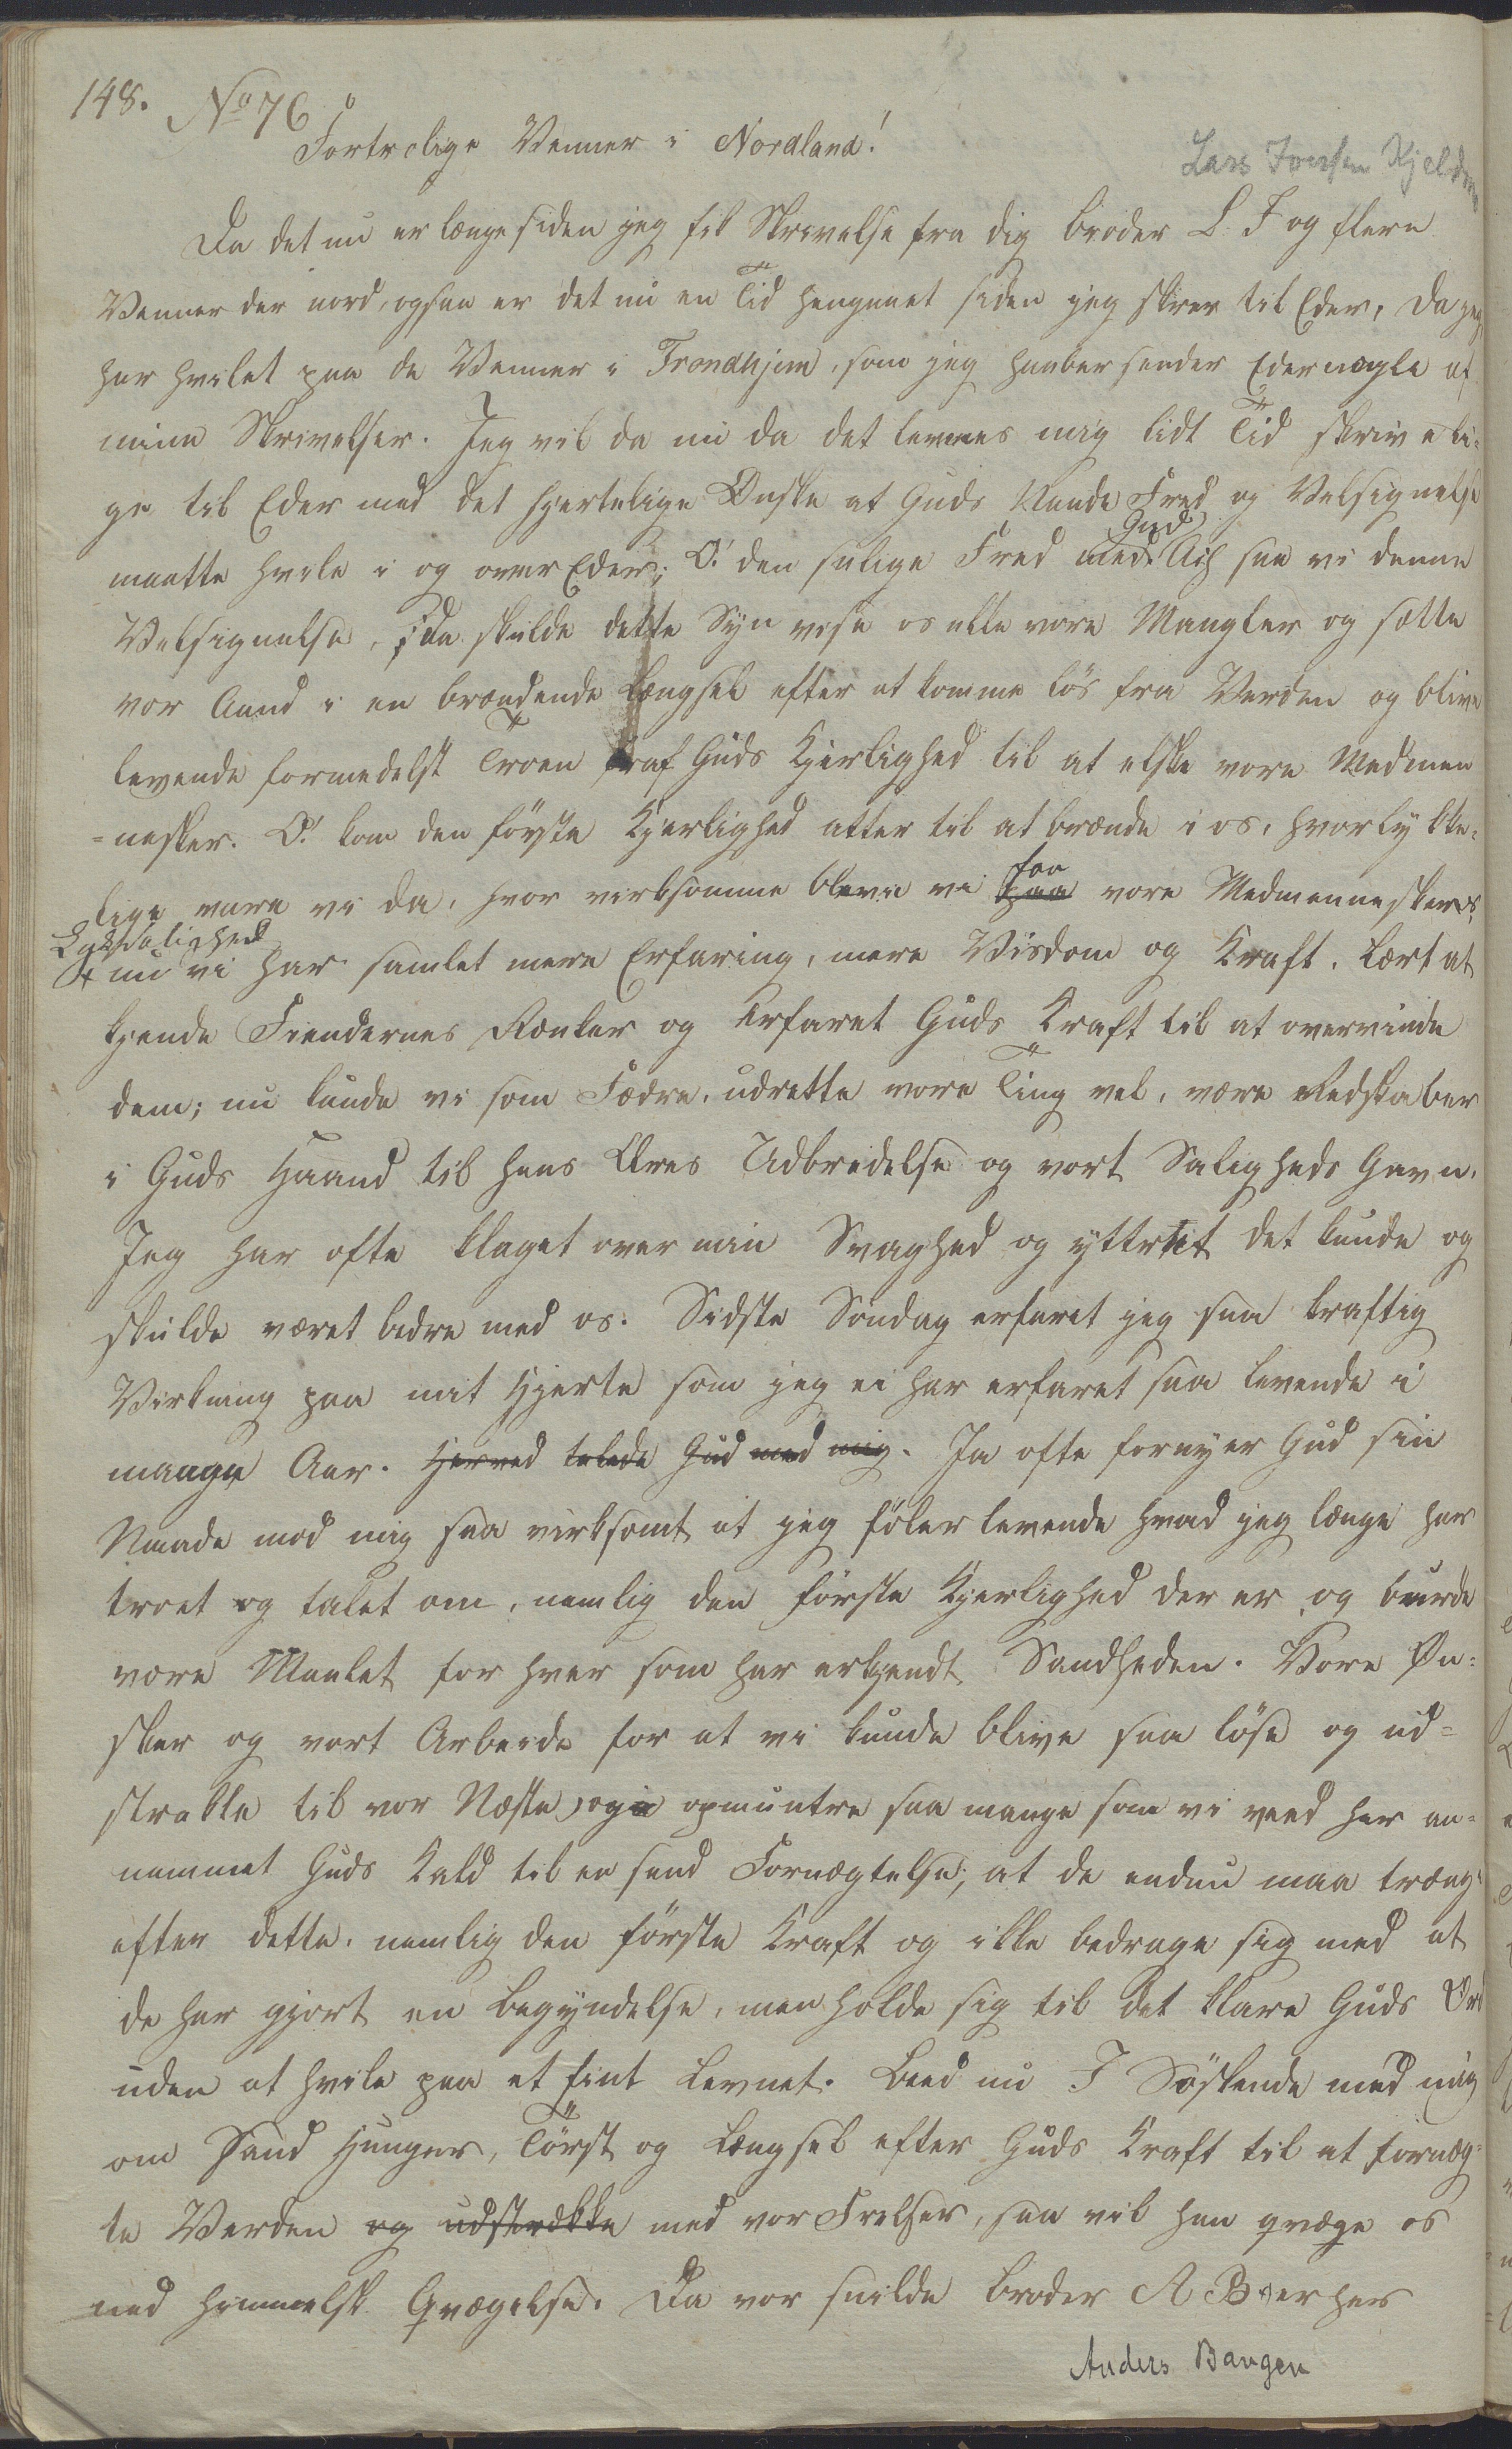 148. No 76
Fortrolige Venner i Nordland!
Lars Iversen Kjeldsen
Da det nu er længe siden jeg fik Skrivelse fra dig broder L. I og flere
Venner der nord, ogsaa er det nu en Tid hengaaet siden jeg skrev til Eder, da jeg
har hvilet paa de Venner i Trondhjem, som jeg haaber sender Eder nogle af
mine Skrivelser. Jeg vil da nu da det levnes mig lidt Tid skrive li-
ge til Eder med det hjertelige Ønske at Guds Naade Fred og Velsignelse
Gud
maatte hvile i og over Eder; O! den salige Fred med Ach saa vi denne
Velsignelse, da skulde dette Syn vise os alle vore Mangler og sætte
vor Aand i en brændende Længsel efter at komme løs fra Verden og blive
levende formedelst Troen af Guds Kjerlighed til at elske vore Medmen
=nesker. O! kom den første Kjerlighed atter til at brænde i os, hvor lykke-
for
lige vare vi da, hvor virksomme bleve vi paa vore Medmenneskers
Lyksalighed
nu vi har samlet mere Erfaring, mere Visdom og Kraft, lært at
kjende Fiendernes Rænker og erfaret Guds Kraft til at overvinde
dem; nu kunde vi som Fædre, udrette vore Ting vel, være Redskaber
i Guds Haand til hans Æres Udbredelse og vort Saligheds Gavn.
Jeg har ofte klaget over min Svaghed og yttret det kunde og
skulde været bedre med os. Sidste Søndag erfaret jeg saa kraftig
Virkning paa mit Hjerte som jeg ei har erfaret saa levende i
mange Aar. Herved talede Gud med mig. Ja ofte fornyer Gud sin
Naade mod mig saa virksomt at jeg føler levende hvad jeg længe har
troet og talet om, nemlig den første Kjerlighed der er og burde
være Maalet for hver som har erkjendt Sandheden. Vore Øn-
sker og vort Arbeide for at vi kunde blive saa løse og ud=
strakte til vor Næste, og opmuntre saa mange som vi veed har an=
nammet Guds Kald til en sand Fornægtelse, at de endnu maa trænge
efter dette, nemlig den første Kraft og ikke bedrage sig med at
de har gjort en Begyndelse, men holde sig til det klare Guds Ord
uden at hvile paa et fint Levnet. Beed nu I Søskende med mig
om Sand Hunger, Tørst og Længsel efter Guds Kraft til at fornæg-
te Verden og udstrække med vor Frelser, saa vil han qvæge os
med himmelsk Qvægelse. Da vor snilde broder A B er her
Anders Bangen